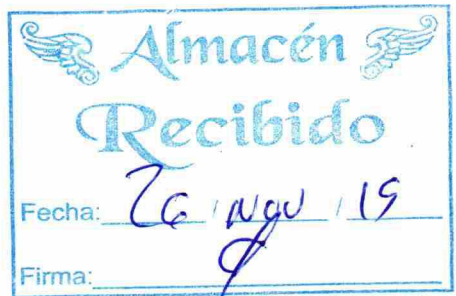 Almacén
Recibido
Fecha: 26 / NOV / 15
Firma: